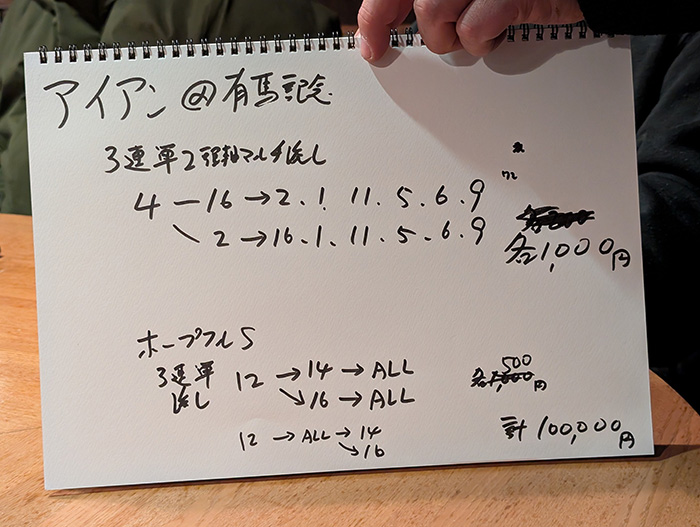 アイアン@有馬記念
3連単2頭軸マルチ流し
4 ー 16 → 2. 1. 11. 5. 6. 9
2 → 16. 1. 11. 5. 6. 9
各1,000円
ホープフルS
3連単 12 → 14 → ALL
流し → 16 → ALL
各500円
12 → ALL → 14
→ 16
計 100,000円